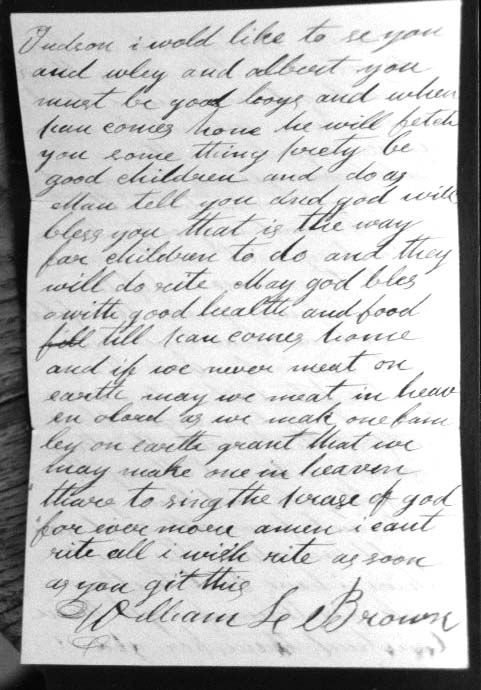 Judson i wold like to se you
and wley and albert you
must be good boys and when
pan comes home he will fetch
you some thing prety be
good children and do as
Mau tell you and god will
bless you that is the way
for children to do and they
will do rite May god bles
with good health and food
till pan comes home
and if we never meat on
earth may we meat in heav
en olord as we mak one fam
ley on earth grant that we
may make one in heaven
thare to sing the prase of god
for ever more amen i cant
rite all i wish rite as soon
as you git this
William L Brown